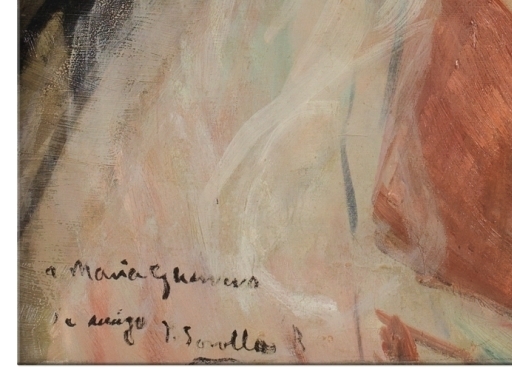 a Maria Guerrero
Su amigo J. Sorolla B